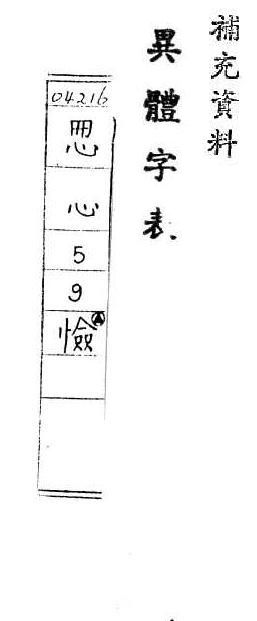 補充資料
異體字表
04216
心
5
9
憸